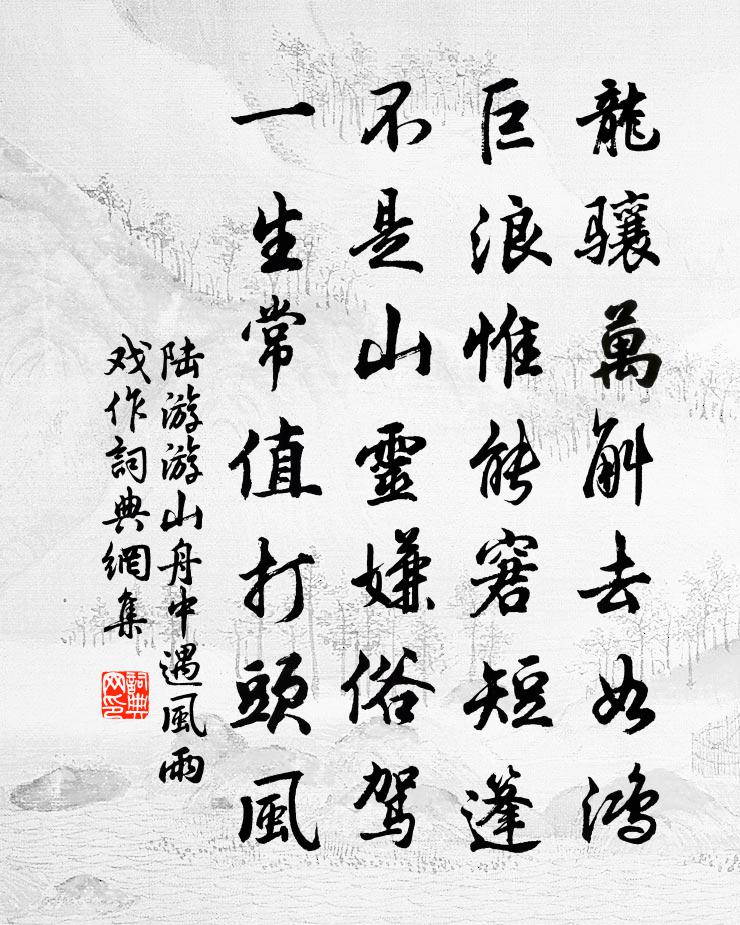 龍骧萬斛去如鸿
巨浪惟能窘短篷
不是山靈嫌俗驾
一生常值打頭風
陆游游山舟中遇風雨
戏作詞典網集
詞典
网印